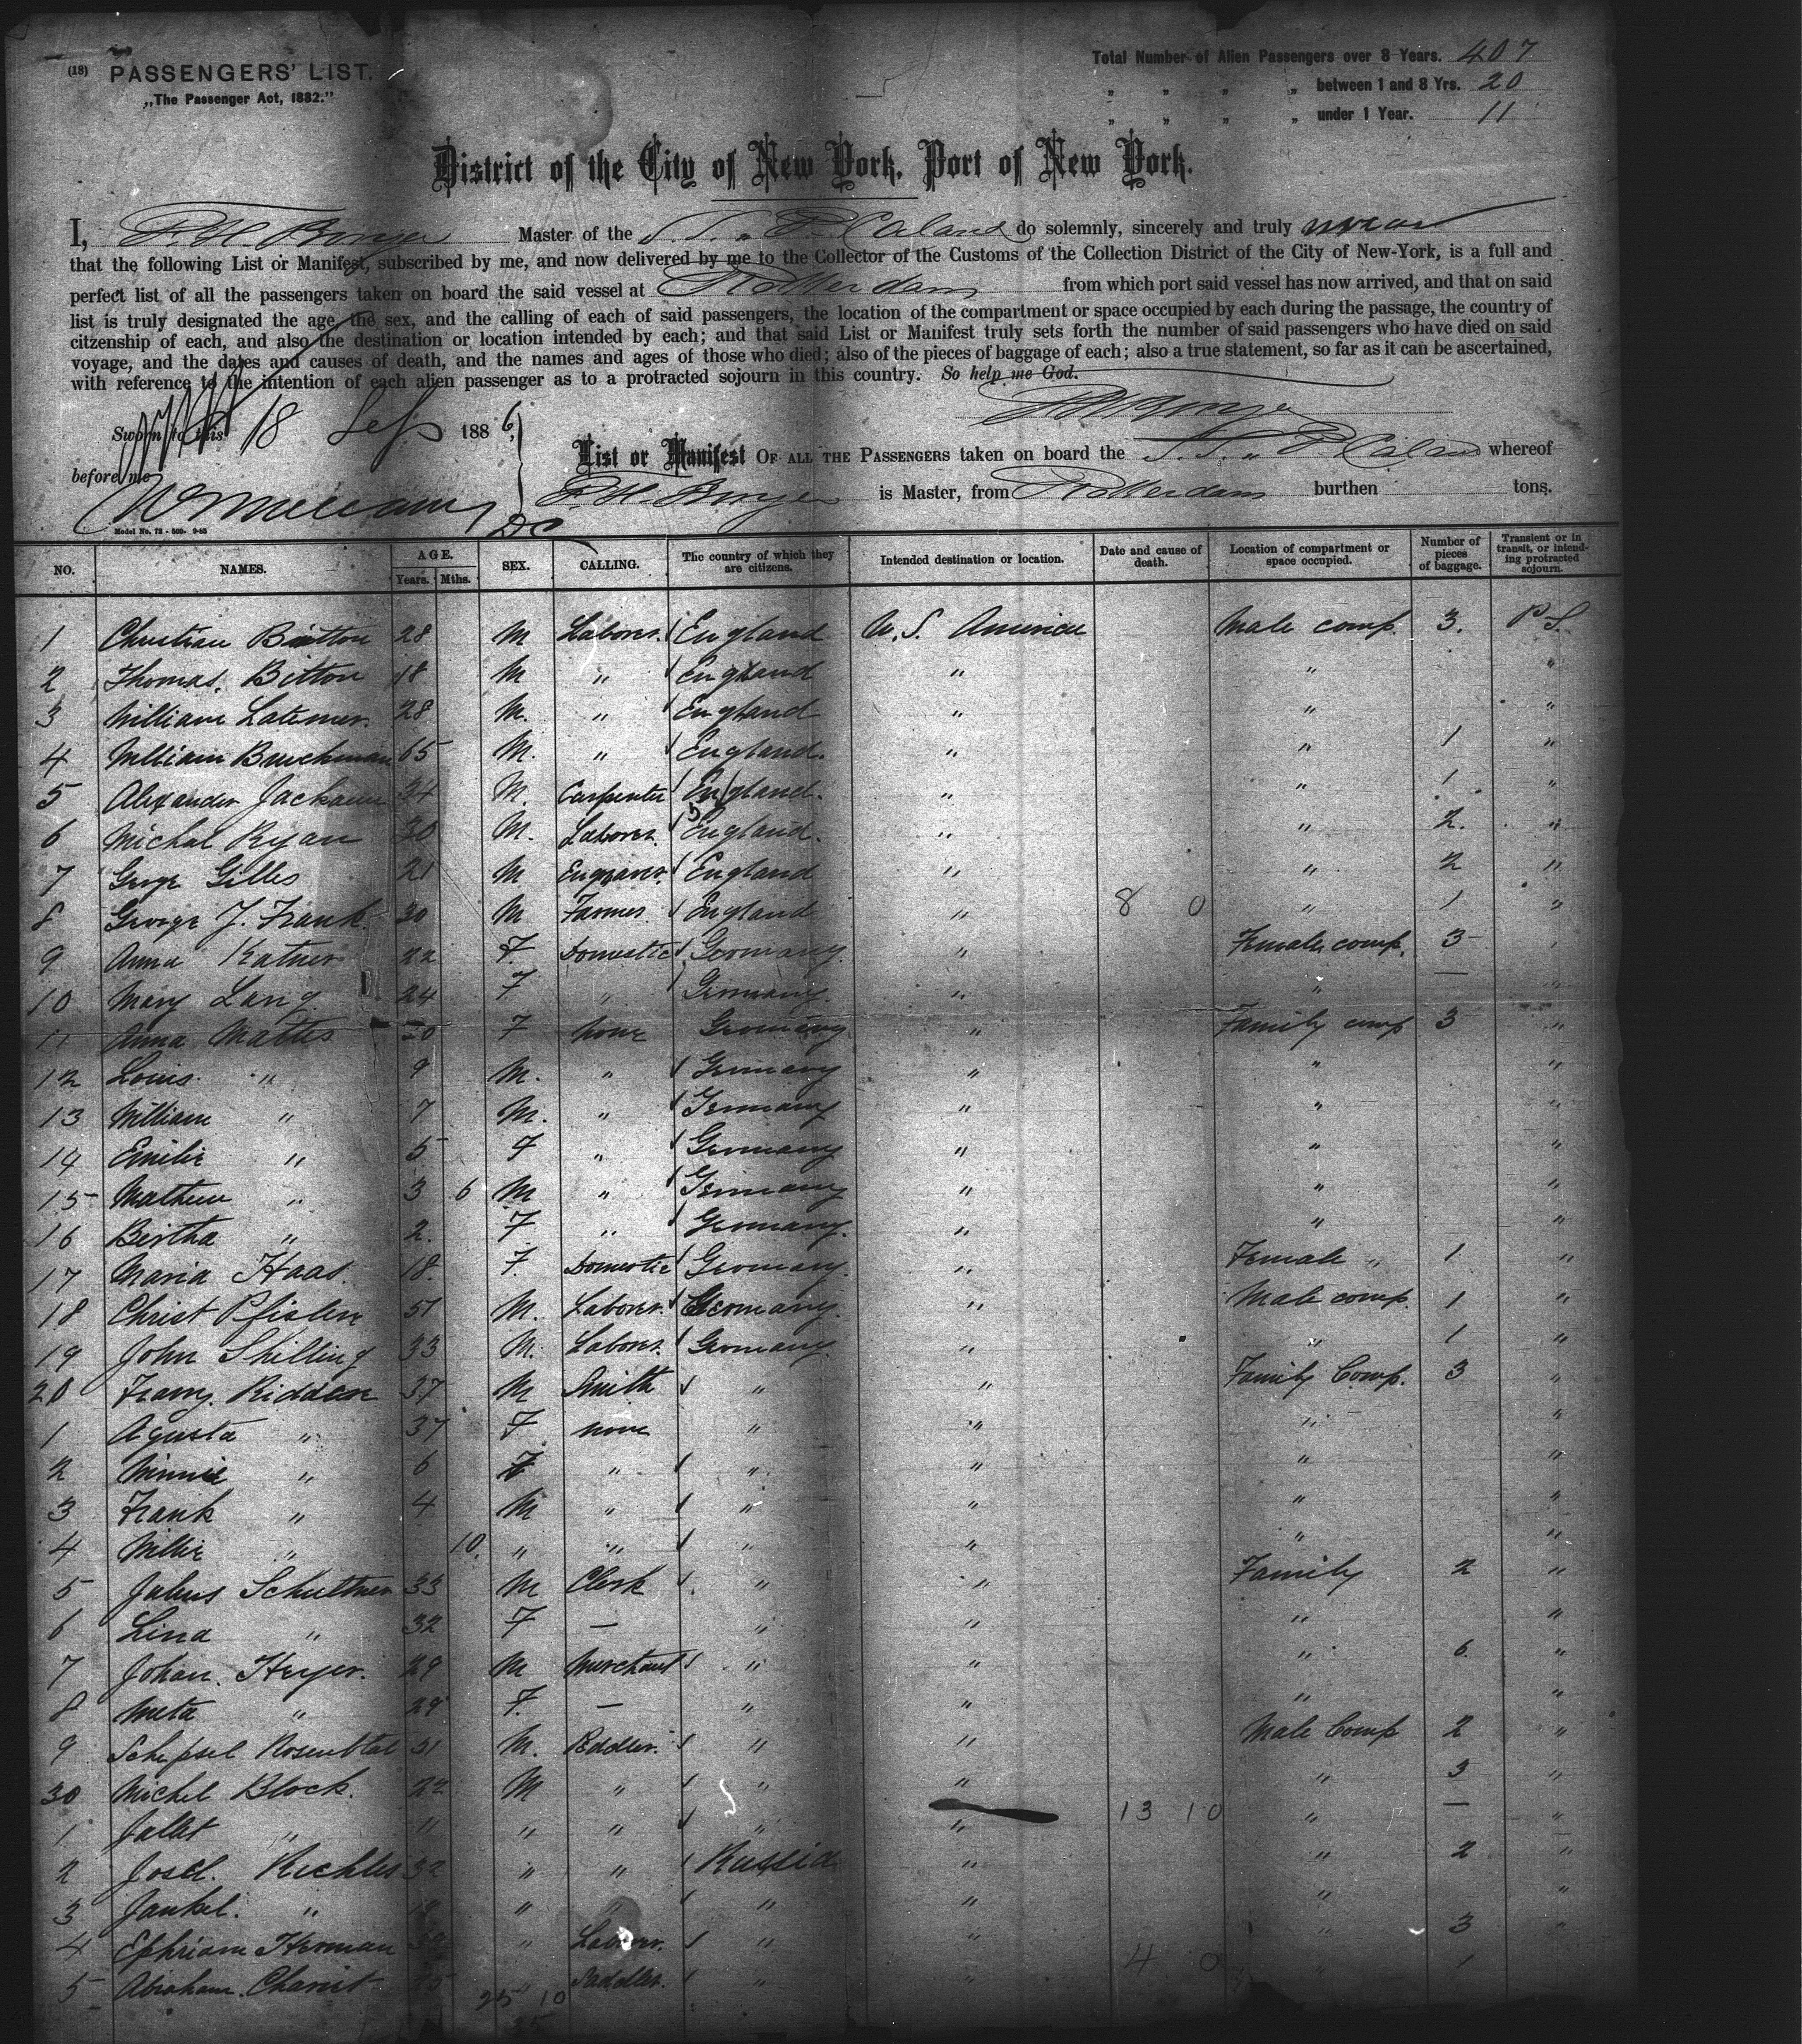 (18) PASSENGERS' LIST.
„The Passenger Act, 1882."
Total Number of Alien Passengers over 8 Years. 407
„ „ „ „ between 1 and 8 Yrs. 20
„ „ „ „ under 1 Year. 11
District of the City of New York, Port of New York.
I, Master of the S.S. „P. Caland do solemnly, sincerely and truly swear
that the following List or Manifest, subscribed by me, and now delivered by me to the Collector of the Customs of the Collection District of the City of New-York, is a full and
perfect list of all the passengers taken on board the said vessel at Rotterdam from which port said vessel has now arrived, and that on said
list is truly designated the age, the sex, and the calling of each of said passengers, the location of the compartment or space occupied by each during the passage, the country of
citzenship of each, and also the destination or location intended by each; and that said List or Manifest truly sets forth the number of said passengers who have died on said
voyage, and the dates and causes of death, and the names and ages of those who died; also of the pieces of baggage of each; also a true statement, so far as it can be ascertained,
with reference to the intention of each alien passenger as to a protracted sojourn in this country. So help me God.
Sworn to this 18 Sep 1886,
before me
List or Manifest OF ALL THE PASSENGERS taken on board the S.S. „P. Caland whereof
is Master, from Rotterdam burthen tons.
Model No. 72 - 500- 9-85
NO. NAMES. AGE. Years. Mths. SEX. CALLING. The country of which they are citizens. Intended destination or location. Date and cause of death. Location of compartment or space occupied. Number of pieces of baggage. Transient or in transit, or intending protracted sojourn.
1 Christian Bitton 28 M Laborer. England U.S. America Male comp. 3. P S.
2 Thomas. Bitton 18 M „ England „ „ „
3 William Latimer. 28 M. „ England „ „ „
4 William 65 M. „ England. „ „ 1 „
5 Alexander 34 M. Carpenter England. „ „ 1 „
6 Michal Ryan 30 M. Laborer. England. „ „ 2. „
7 George Gilles 21 M Engraver. England „ „ 2 „
8 George J. Frank. 30 M Farmer England „ 8 0 „ 1 „
9 Anna Katner 22 F Domestic Germany. „ Female comp. 3
10 Mary Lang. 24 F „ Germany. „ „ — „
11 Anna Mattes F none Germany „ Family comp 3 „
12 Louis. „ 9 M. „ Germany „ „ „
13 William „ 7 M. „ Germany „ „ „
14 Emilie „ 5 F „ Germany „ „ „
15 Mathew „ 3 6 M „ Germany „ „ „
16 Bertha „ 2. F „ Germany. „ „ „
17 Maria Haas. 18. F. Domestic Germany. „ Female „ 1 „
18 Christ 51 M. Laborer. Germany. „ Male comp. 1 „
19 John Shilling 33 M. Laborer. Germany. „ „ 1 „
20 37 M Smith „ „ Family Comp. 3 „
1 Agusta „ 37 F none „ „ „ „
2 Minnie „ 6 F „ „ „ „ „
3 Frank „ 4 M „ „ „ „ „
4 Willie „ 10. „ „ „ „ „ „
5 Julius 33 M Clerk „ „ Family 2 „
6 Lina „ 32 F — „ „ „ „
7 Johan. Heyer. 29 M Merchant „ „ „ 6. „
8 Meta „ 29 F. — „ „ „ „
9 Schepsel Rosenthal M. Peddler. „ „ Male Comp 2 „
30 Michel Block. 22 M „ „ „ „ 3 „
1 „ 11 „ „ „ „ 13 10 „ — „
2 32 „ „ Russia „ „ 2 „
3 Jankel. „ „ „ „ „ „
4 Ephriam Herman „ Laborer. „ „ 3 „
5 Abraham. Saddler. „ „ 4 0 1
25 10